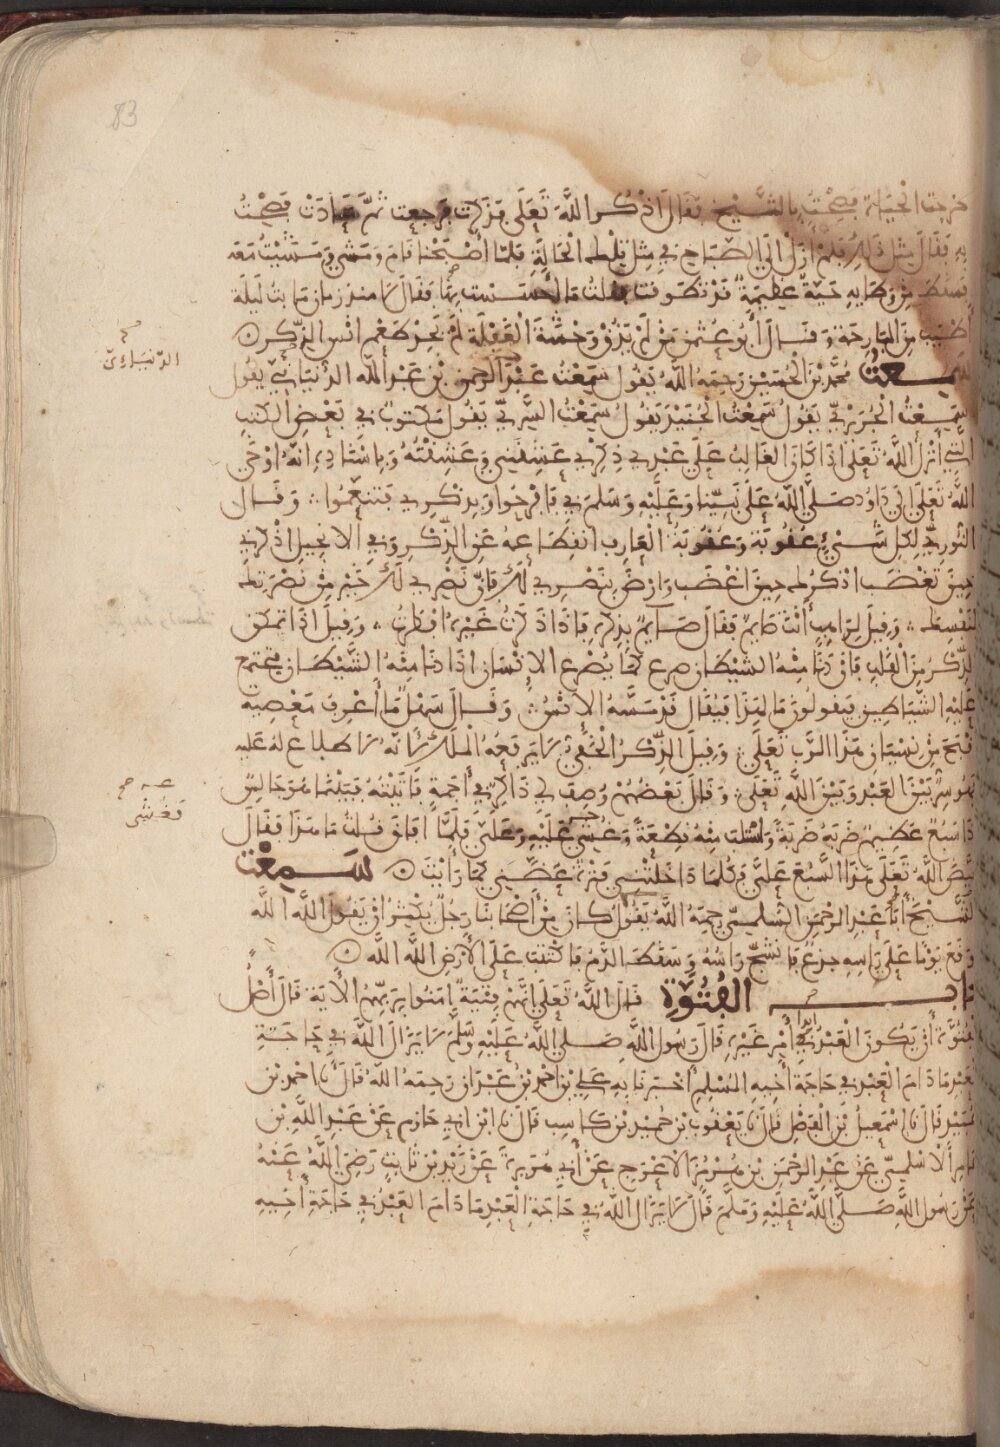 83
خرجت الحية فصحت بالشيخ فقال اذكروا الله تعلى فذكرت فرجعت ثم عادت فصحت
به فقال مثل ذلك فلم ازل الى الصباح في مثل تلك الحالة فلما اصبحنا قام ومشى ومشيت معه
فسقط من وطايه حية عظيمة قد تطوقت فقلت ما احسست بها فقال لا منذ زمان ما بت ليلة
اطيب من البارحة وقال ابو عثمن من لم يذق وحشة الغفلة لم يجد طعم انس الذكر
سمعت محمد بن الحسين رحمه الله يقول سمعت عبد الرحمن بن عبد الله الدنباني يقول
سمعت الجريري يقول سمعت الجنيد يقول سمعت السري يقول مكتوب في بعض الكتب
التي انزل الله تعلى اذا كان الغالب على عبدي ذكري عشقني وعشقته وباسناده انه اوحى
الله تعلى الى داود صلى الله على نبينا وعليه وسلم بي فافرحوا وبذكري فتنعموا وقال
الثوري لكل شيء عقوبة وعقوبة العارف انقطاعه عن الذكر وفي الانجيل اذكرني
حين تغضب اذكرك حين اغضب وارض بنصري لك فان نصري لك خير من نصرتك
لنفسك وقيل لراهب أنت صايم فقال صايم بذكره فاذا ذكرت غيره افطرت وقيل اذا تمكن
الذكر من القلب فان دنا منه الشيطان صرع كما يصرع الانسان اذا دنا منه الشيطان فتجتمع
عليه الشياطين فيقولون ما لهذا فيقال قد مسه الانس وقال سهل ما أعرف معصية
اقبح من نسيان هذا الرب تعلى وقيل الذكر الخفي لا يرفعه الملك لانه لا اطلاع له عليه
فهو سر بين العبد وبين الله تعلى وقال بعضهم وصف لي ذاكر في أجمة فاتيته فبينما هو جالس
اذا سبع عظيم ضربه ضربة واستلب منه قطعة وغشي عليه وعلي فلما افاق قلت ما هذا فقال
قيض الله تعلى هذا السبع علي فكلما داخلتني فترة عضني كما رأيت سمعت
الشيخ أبا عبد الرحمن السلمي رحمه الله يقول كان من اصحابنا رجل يكثر ان يقول الله الله
فوقع يوما على راسه جذع فانشج راسه وسقط الدم فاكتتب على الارض الله الله
باب الفتوة قال الله تعلى انهم فتية امنوا بربهم الأية قال أصل
الفتوة أن يكون العبد ابدا في أمر غيره قال رسول الله صلى الله عليه وسلم لا يزال الله في حاجة
العبد ما دام العبد في حاجة أخيه المسلم أخبرنا به علي بن احمد بن عبدان رحمه الله قال نا احمد بن
عبيد قال نا اسمعيل بن الفضل قال نا يعقوب بن حميد بن كاسب قال نا ابن ابي حازم عن عبد الله بن
عامر الاسلمي عن عبد الرحمن بن هرمز الاعرج عن أبي هريرة عن زيد بن ثابت رضي الله عنه
عن رسول الله صلى الله عليه وسلم قال لا يزال الله في حاجة العبد ما دام العبد في حاجة أخيه
فغشى